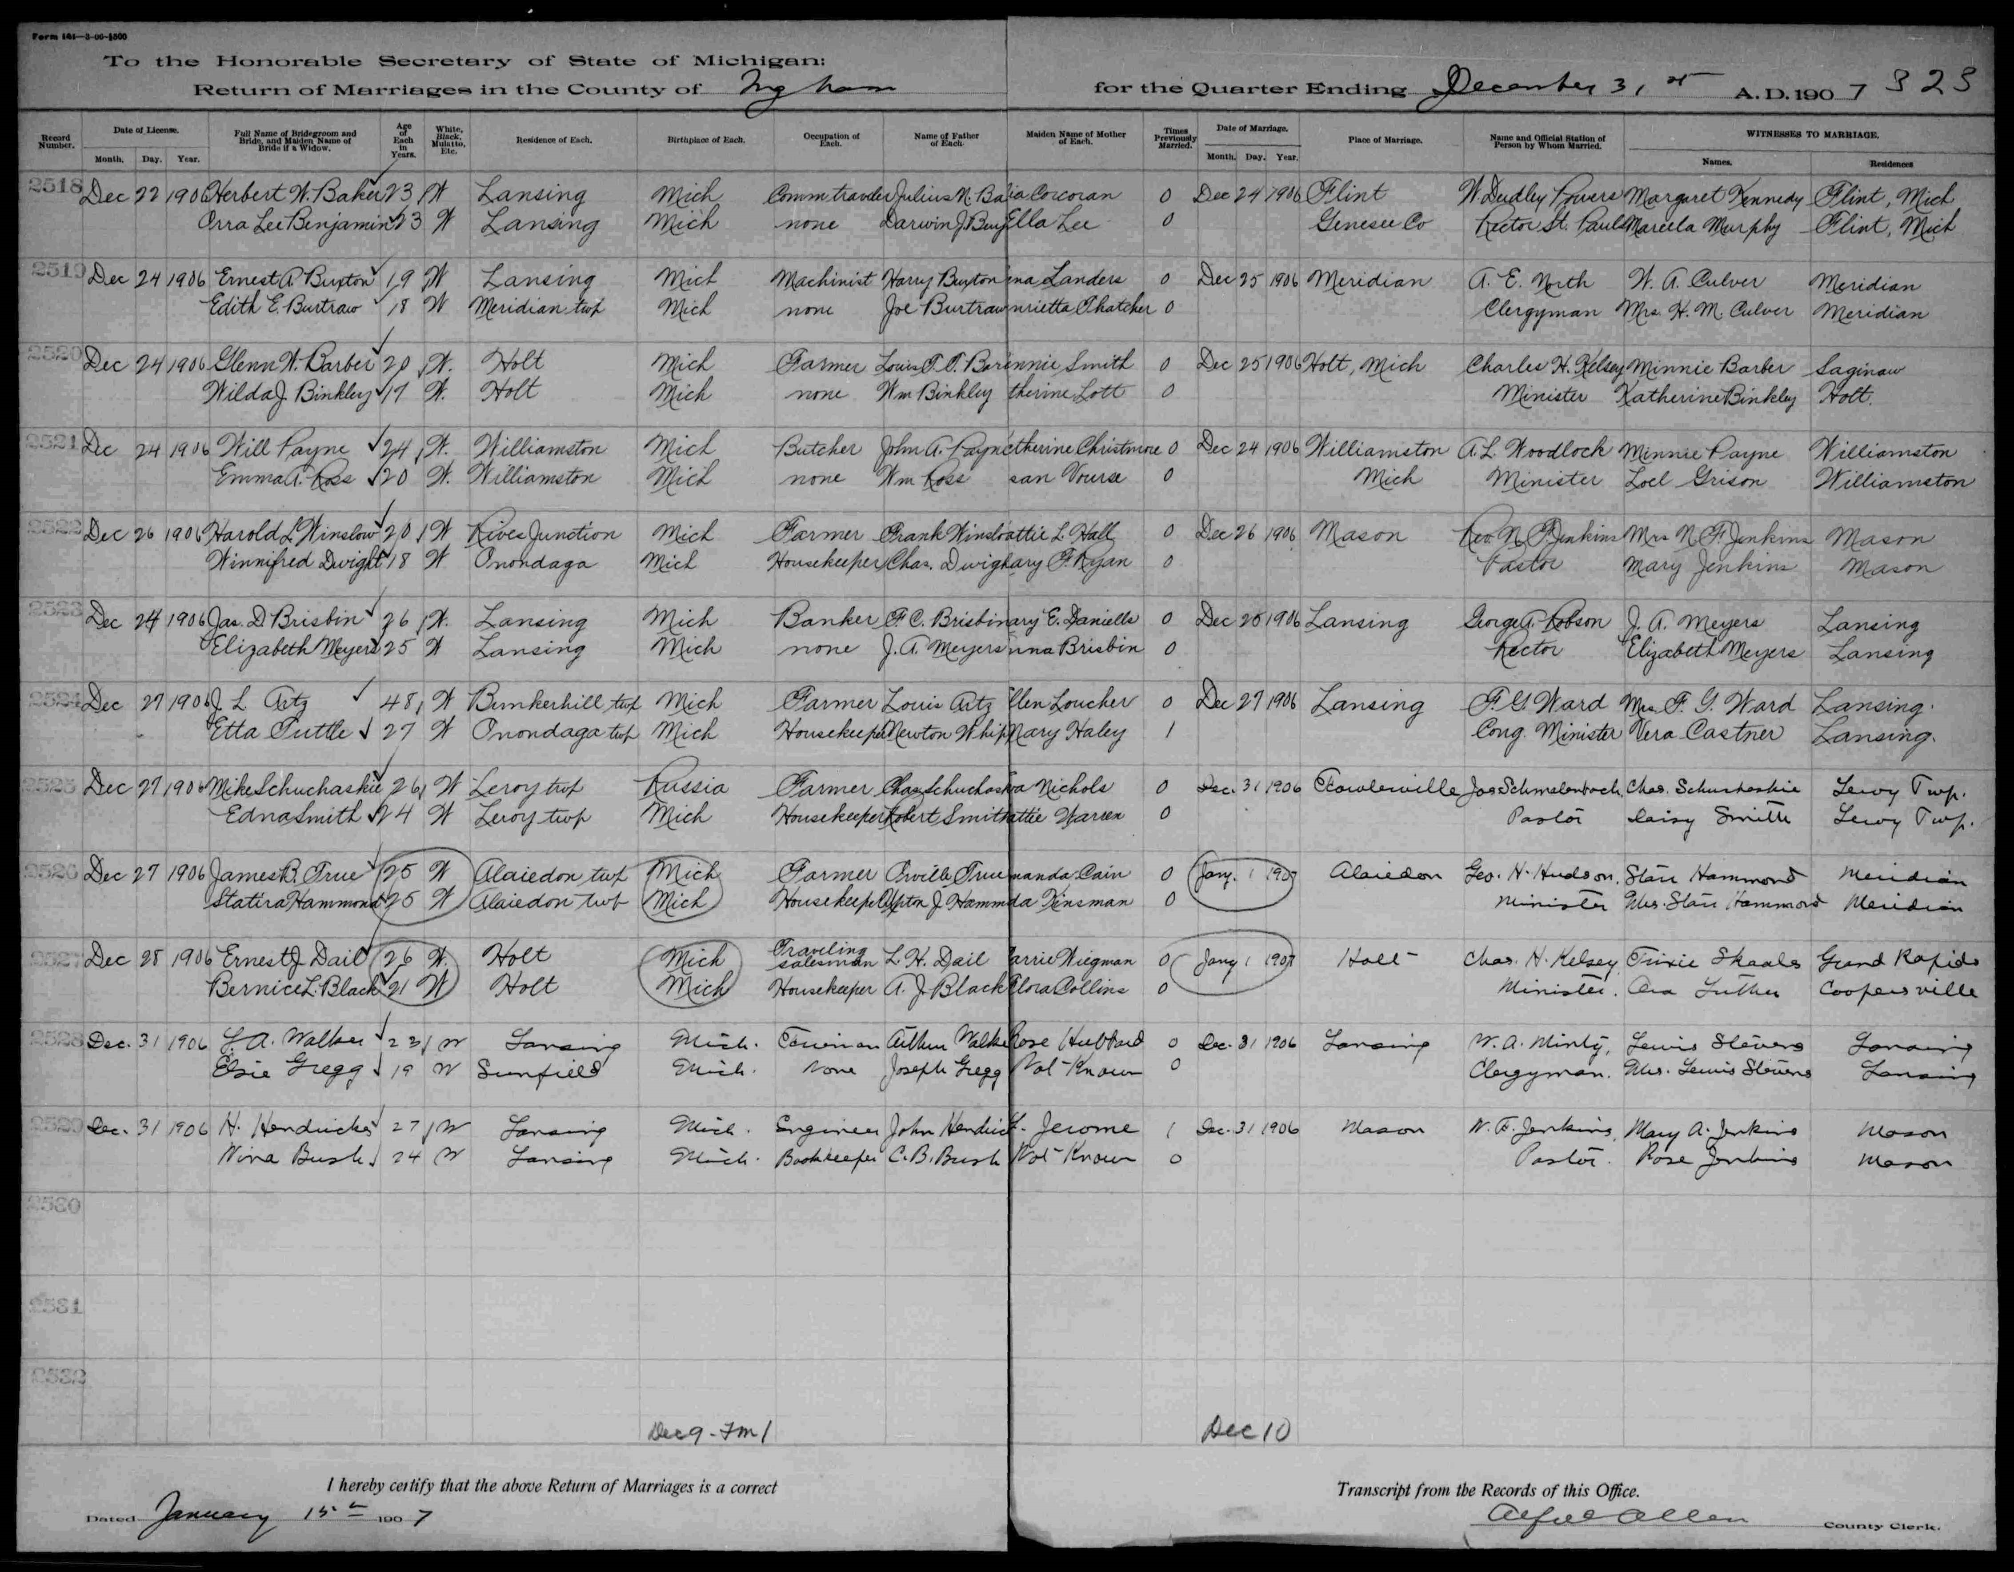 Form 161—3-06-1500
To the Honorable Secretary of State of Michigan:
Return of Marriages in the County of Ingham for the Quarter Ending December 31st A.D. 1907 323
Record Number. Date of License. Month. Day. Year. Full Name of Bridegroom and Bride, and Maiden Name of Bride if a Widow. Age of Each in Years. White, Black, Mulatto, Etc. Residence of Each. Birthplace of Each. Occupation of Each. Name of Father of Each. Maiden Name of Mother of Each. Times Previously Married. Date of Marriage. Month. Day. Year. Place of Marriage. Name and Official Station of Person by Whom Married. WITNESSES TO MARRIAGE. Names. Residences
2518 Dec 22 1906 Herbert W. Baker 23 W Lansing Mich Comm traveler Julius N. Ba ia Corcoran 0 Dec 24 1906 Flint W. Dudley Powers Margaret Kennedy Flint, Mich
Orra Lee Benjamin 23 W Lansing Mich none Darwin J. Benj Ella Lee 0 Genesee Co Rector St. Pauls Marcela Murphy Flint, Mich
2519 Dec 24 1906 Ernest A. Buxton 19 W Lansing Mich Machinist Harry Buxton ena Landers 0 Dec 25 1906 Meridian A. E. North W. A. Culver Meridian
Edith E. Burtraw 18 W Meridian twp Mich none Joe Burtraw nrietta Thatcher 0 Clergyman Mrs. H. M. Culver Meridian
2520 Dec 24 1906 Glenn W. Barber 20 W. Holt Mich Farmer Louis T. O. Bar ennie Smith 0 Dec 25 1906 Holt, Mich Charles H. Kelsey Minnie Barber Saginaw
Wilda J. Binkley 17 W. Holt Mich none Wm Binkley therine Lott 0 Minister Katherine Binkley Holt.
2521 Dec 24 1906 Will Payne 24 W. Williamston Mich Butcher John A. Payne atherine Christmore 0 Dec 24 1906 Williamston A. L. Woodlock Minnie Payne Williamston
Emma A. Ross 20 W. Williamston Mich none Wm Ross san Vourse 0 Mich Minister Loel Grison Williamston
2522 Dec 26 1906 Harold L. Winslow 20 W Rives Junction Mich Farmer Frank Winslo attie L. Hall 0 Dec 26 1906 Mason Rev. N. F. Jenkins Mrs N. F. Jenkins Mason
Winnifred Dwight 18 W Onondaga Mich Housekeeper Chas. Dwigh ary F. Ryan 0 Pastor Mary Jenkins Mason
2523 Dec 24 1906 Jas. D. Brisbin 26 W. Lansing Mich Banker F. C. Brisbin ary E. Daniells 0 Dec 25 1906 Lansing George A. Robson J. A. Meyers Lansing
Elizabeth Meyers 25 W Lansing Mich none J. A. Meyers nna Brisbin 0 Rector Elizabeth Meyers Lansing
2524 Dec 27 1906 J. L. Artz 48 W Bunkerhill twp Mich Farmer Louis Artz llen Loucher 0 Dec 27 1906 Lansing F. G. Ward Mrs. F. G. Ward Lansing.
Etta Tuttle 27 W Onondaga twp Mich Housekeeper Newton Whip Mary Haley 1 Cong. Minister Vera Castner Lansing.
2525 Dec 27 1906 Mike Schuchaskie 26 W Leroy twp Russia Farmer Chas Schuchask va Nichols 0 Dec. 31 1906 Fowlerville Jos Schmalenbach Chas. Schuchaskie Leroy Twp.
Edna Smith 24 W Leroy twp Mich Housekeeper Robert Smith attie Warren 0 Pastor Daisy Smith Leroy Twp.
2526 Dec 27 1906 James B. True 25 W Alaiedon twp Mich Farmer Orville True manda Cain 0 Jany. 1 1907 Alaiedon Geo. H. Hudson, Starr Hammond Meridian
Statira Hammond 25 W Alaiedon twp Mich Housekeeper Upton J. Hamm da Kinsman 0 Minister Mrs. Starr Hammond Meridian
2527 Dec 28 1906 Ernest J. Dail 26 W. Holt Mich Traveling salesman L. H. Dail arrie Wiegman 0 Jany 1 1907 Holt Chas. H. Kelsey Trixie Skaals Grand Rapids
Bernice L. Black 21 W Holt Mich Housekeeper A. J. Black Flora Collins 0 Minister. Ora Luther Coopersville
2528 Dec. 31 1906 L. A. Walker 23 W Lansing Mich. Arthur Walke Rose Hubbard 0 Dec. 31 1906 Lansing W. A. Minty, Lewis Stevens Lansing
Elsie Gregg 19 W Sunfield Mich. None Joseph Gregg Not Known 0 Clergyman. Mrs. Lewis Stevens Lansing
2529 Dec. 31 1906 H. Hendricks 27 W Lansing Mich. Engineer John Hendric Jerome 1 Dec. 31 1906 Mason W. F. Jenkins, Mary A. Jenkins Mason
Nina Bush 24 W Lansing Mich. Bookkeeper C. B. Bush Not Known 0 Pastor. Rose Jenkins Mason
2530
2531
2532
Dec 9 - Fm 1 Dec 10
I hereby certify that the above Return of Marriages is a correct Transcript from the Records of this Office.
Dated January 15th 1907 Alfred Allen County Clerk.